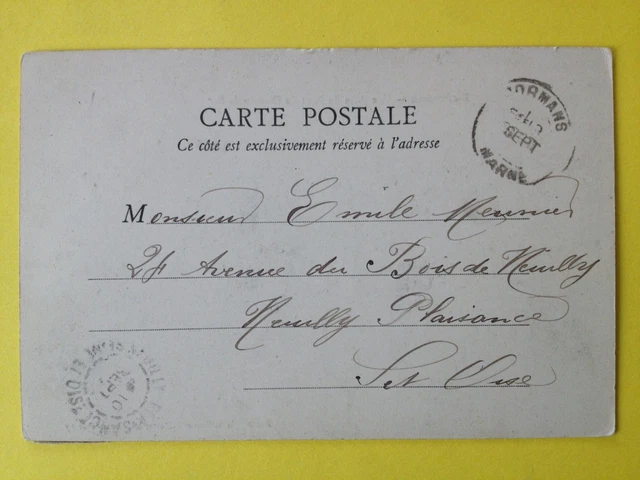 CARTE POSTALE
Ce côté est exclusivement réservé à l'adresse
DORMANS
SEPT
MARNE
Monsieur Emile Meunier
24 Avenue du Bois de Neuilly
Neuilly Plaisance
Set Oise
SEPT